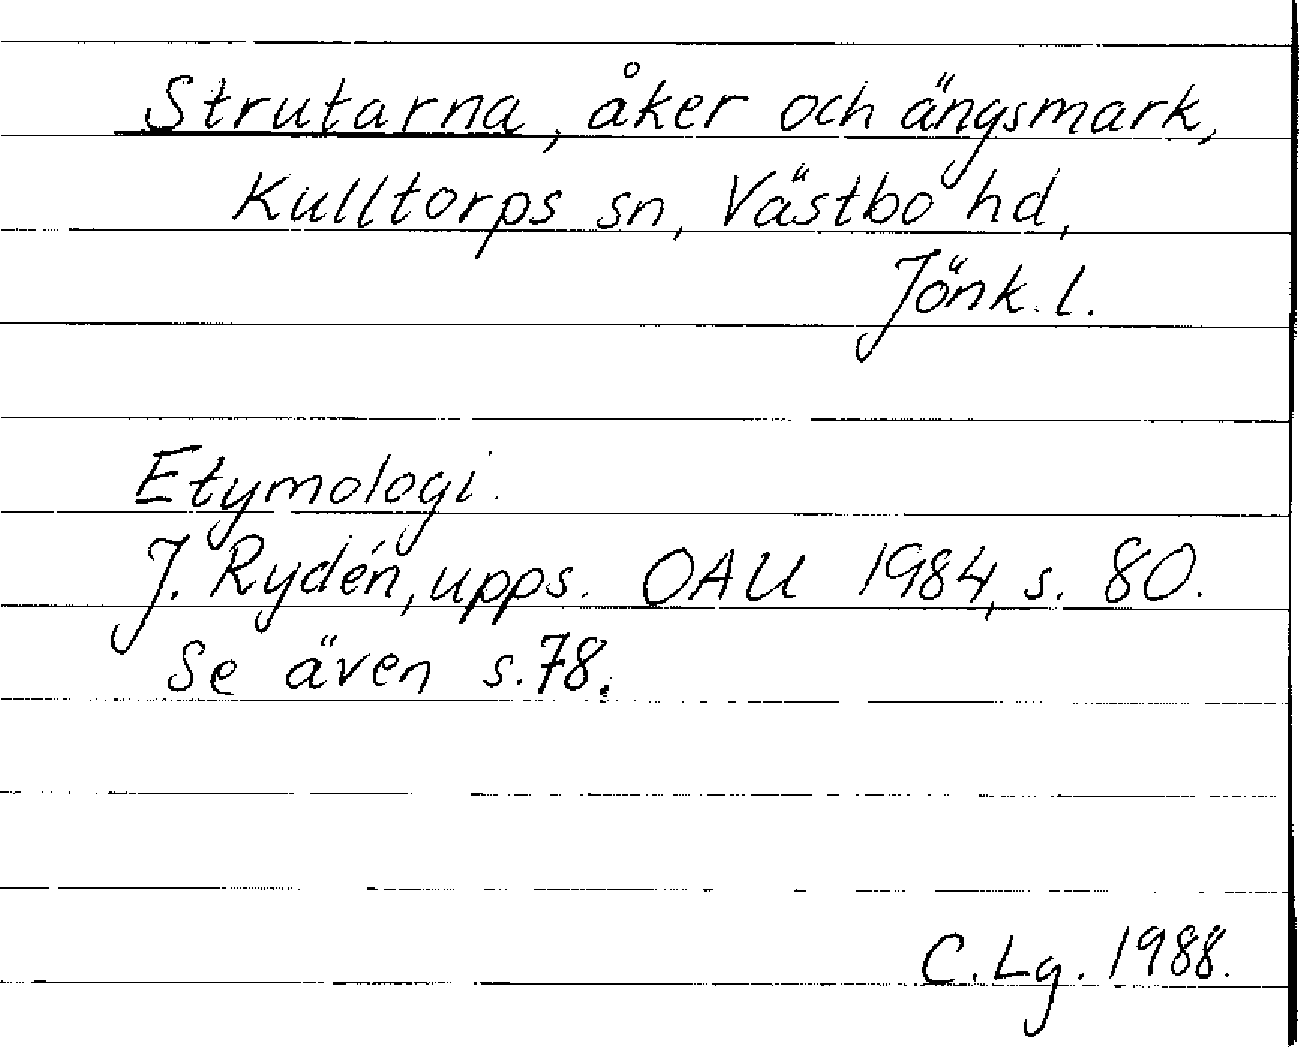 Strutarna, åker och ängsmark,
Kulltorps sn, Västbo hd,
Jönk. l.
Etymologi.
J. Rydén, upps. OAU 1984, s. 80.
Se även s. 78.
C. Lg. 1988.